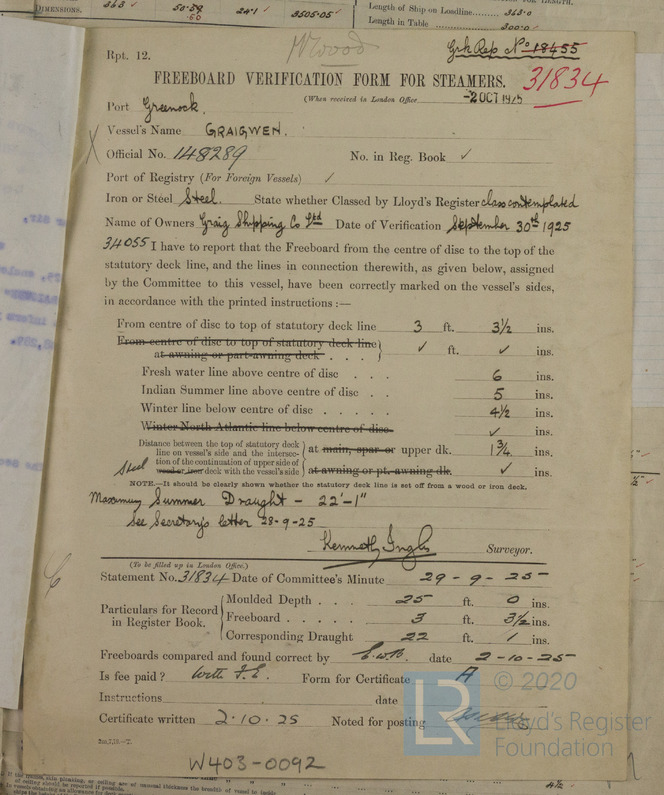 DIMENSIONS. 363 50.58 24.1 3505.05
.50
Length of Ship on Loadline......... 363.0
Length in Table ......... 300.0
Rpt. 12.
Wood
Grk Rep No 18455
FREEBOARD VERIFICATION FORM FOR STEAMERS.
31834
(When received in London Office -2 OCT 1925
Port Greenock.
Vessel's Name GRAIGWEN.
Official No. 148289 No. in Reg. Book ✓
Port of Registry (For Foreign Vessels) ✓
Iron or Steel Steel. State whether Classed by Lloyd's Register class contemplated
Name of Owners Graig Shipping Co Ltd Date of Verification September 30th 1925
34055 I have to report that the Freeboard from the centre of disc to the top of the
statutory deck line, and the lines in connection therewith, as given below, assigned
by the Committee to this vessel, have been correctly marked on the vessel's sides,
in accordance with the printed instructions :—
From centre of disc to top of statutory deck line 3 ft. 3½ ins.
From centre of disc to top of statutory deck line
at awning or part-awning deck . . . ✓ ft. ✓ ins.
Fresh water line above centre of disc . . . 6 ins.
Indian Summer line above centre of disc . . 5 ins.
Winter line below centre of disc . . . . . 4½ ins.
Winter North Atlantic line below centre of disc ✓ ins.
Distance between the top of statutory deck
line on vessel's side and the intersec- at main, spar or upper dk. 1¾ ins.
tion of the continuation of upper side of
Steel wood or iron deck with the vessel's side at awning or pt. awning dk. ✓ ins.
NOTE.—It should be clearly shewn whether the statutory deck line is set off from a wood or iron deck.
Maximum Summer Draught - 22'-1"
See Secretary's letter 28-9-25
Kenneth Inglis Surveyor.
(To be filled up in London Office.)
Statement No. 31834 Date of Committee's Minute 29-9-25
Particulars for Record
in Register Book.
Moulded Depth . . . 25 ft. 0 ins.
Freeboard . . . . . 3 ft. 3½ ins.
Corresponding Draught 22 ft. 1 ins.
Freeboards compared and found correct by date 2-10-25
Is fee paid? With F.E. Form for Certificate A
Instructions date
Certificate written 2.10.25 Noted for posting
© 2020
LR
Lloyd's Register
Foundation
W403-0092